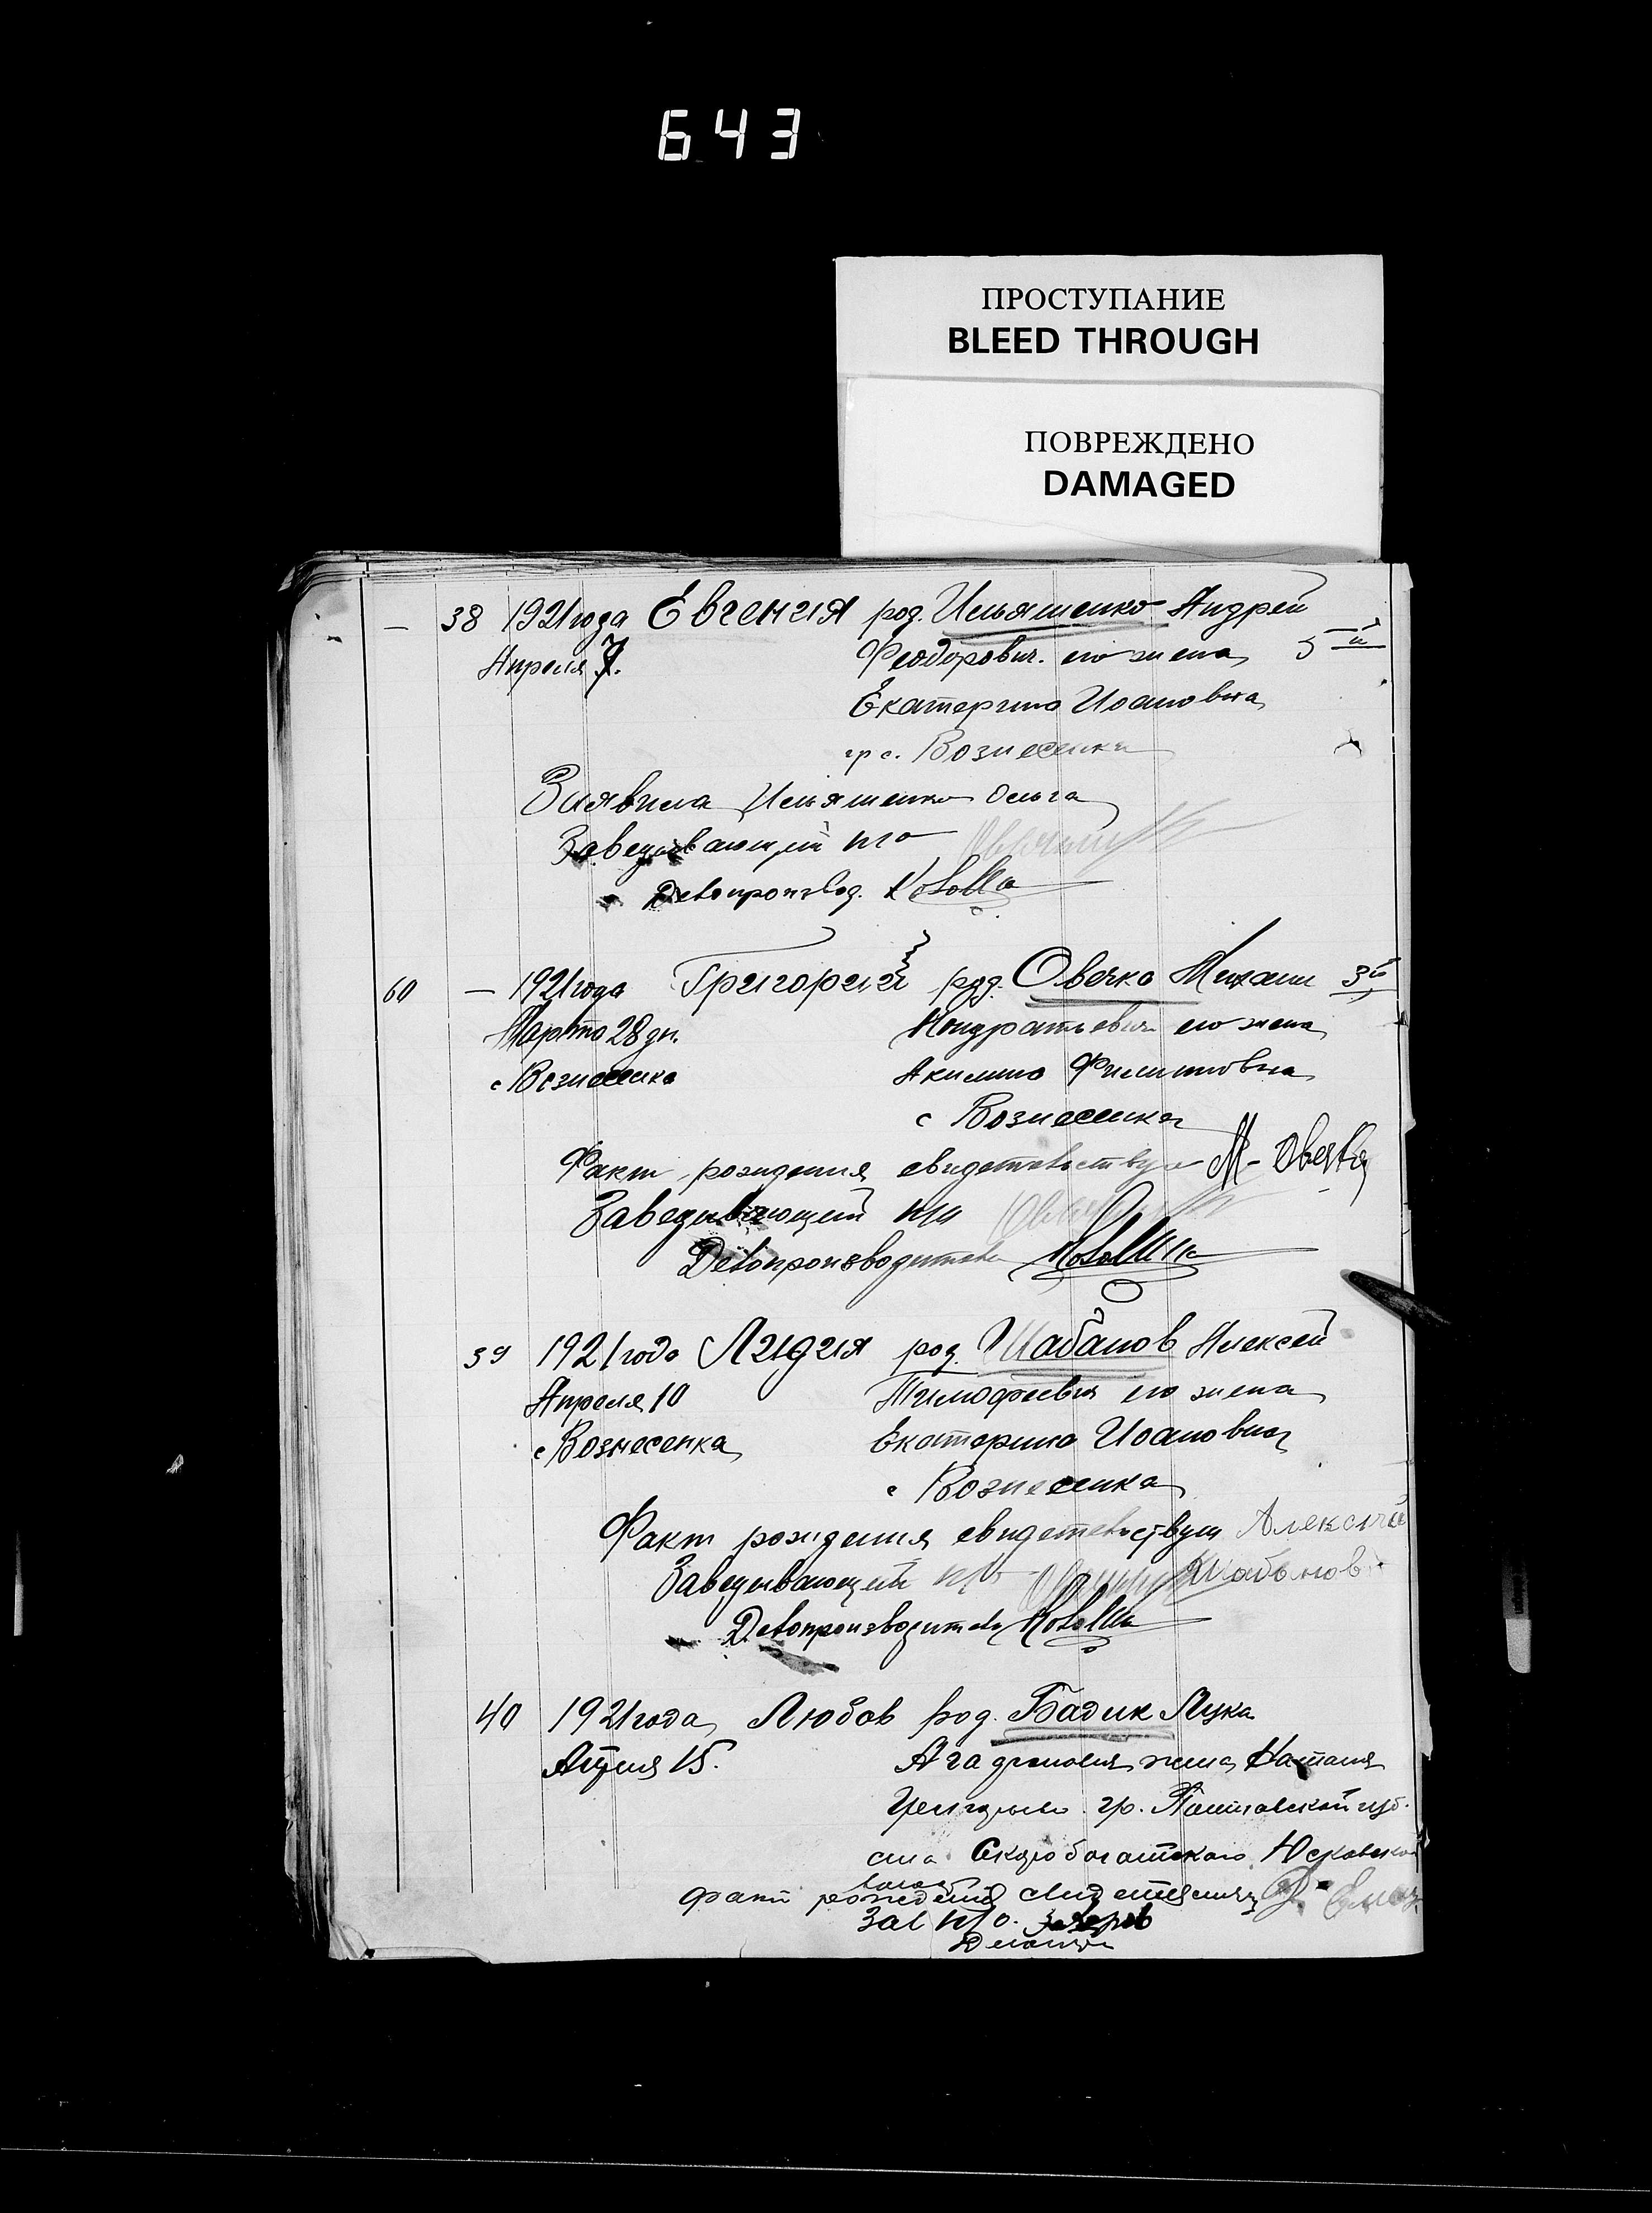 643
ПРОСТУПАНИЕ
BLEED THROUGH
ПОВРЕЖДЕНО
DAMAGED
— 38 1921 года Евгения род. Ильяшенко Андрей
Апреля 7. Феодорович. его жена 5й
Екатерина Иоановна
гр с. Вознесенки
Заявила Ильяшенко Ольга
Заведывающий п/о
Делопроизвод.
60 — 1921 года Григорий род. Овечко Михаил 3й
Марта 28 дн. Кондратьевич его жена
с Вознесенка Акилина Филиповна
с Вознесенка
Факт рождения свидетельствую М-
Заведывающий п/о
Делопроизводитель
39 1921 года Лидия род. Шабанов Алексей
Апреля 10 Тимофеевич его жена
с Вознесенка Екатерина Иоановна
с Вознесенка
Факт рождения свидетельствую Алексей
Заведывающий п/о Шабанов
Делопроизводитель
40 1921 года Любов род. Бадик Лука
Апреля 15. жена Наталя
гр. Полтавской губ.
Скоробогатского
факт рождения
Зав п/о.